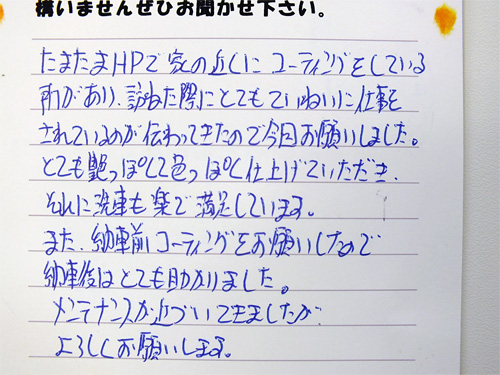 構いませんぜひお聞かせ下さい。
たまたまHPで家の近くにコーティングをしている
所があり、訪ねた際にとてもていねいに仕事を
されているのが伝わってきたので今回お願いしました。
とても艶っぽくて色っぽく仕上げていただき、
それに洗車も楽で満足しています。
また、納車前にコーティングをお願いしたので
納車後はとても助かりました。
メンテナンスが近づいてきましたが、
よろしくお願いします。